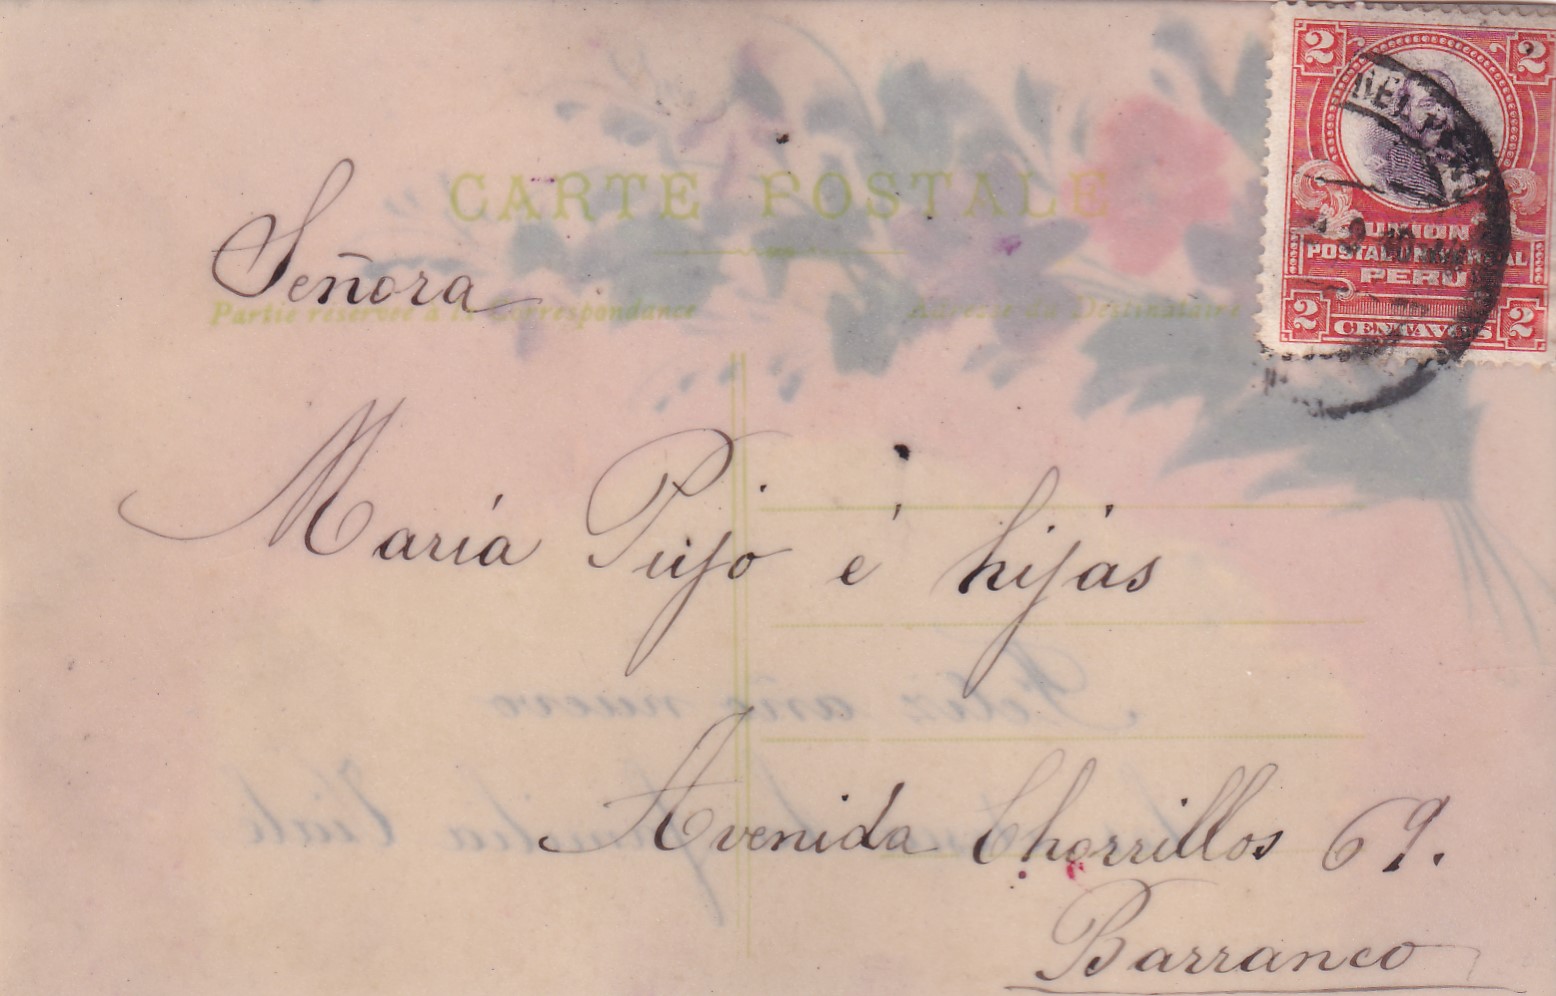 CARTE POSTALE
Partie réservée à la Correspondance
Adresse du Destinataire
2 2
UNION
POSTAL UNIVERSAL
PERÚ
2 CENTAVOS 2
Señora
María Pujo é hijas
Avenida Chorrillos 69.
Barranco
Feliz año nuevo
familia